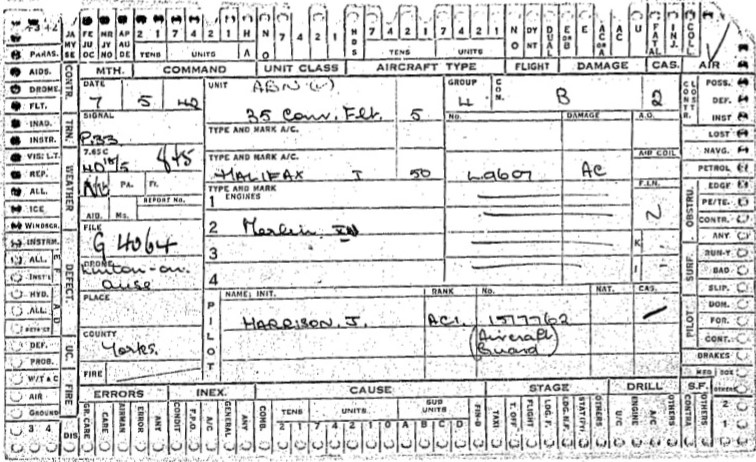 JA FE MR AP 2 1 7 4 2 1 H NO 7 4 2 1 HDS 7 4 2 1 7 4 2 1 NO DY NT DUAL E OR B E AC OR A AC U FATAL INJ. COLL
MY JU JY AU
SE DC NO DE TENS UNITS A TENS UNITS
MTH. COMMAND UNIT CLASS AIRCRAFT TYPE FLIGHT DAMAGE CAS. AIR
PARAS.
AIDS.
DROME.
FLT.
INAD.
INSTR.
VIS: L.T.
REP.
ALL.
ICE
WINDSCR.
INSTRM.
ALL.
INST'L
HYD.
ALL.
DEF.
PROB.
W/T & C
AIR
GROUND
3 4
CONTR.
TRN.
WEATHER
DEFECT.
UC.
FIRE
DIS
DATE
7 5 42
SIGNAL
P.33
7.65 C
HD 18/5 845
PA. Ft.
REPORT No.
AID. Ms.
FILE
G 4064
DROME
Linton-on-
Ouse
PLACE
COUNTY
Yorks.
FIRE
UNIT
35 Conv. Flt. 5
TYPE AND MARK A/C.
TYPE AND MARK A/C.
HALIFAX I 50
TYPE AND MARK
ENGINES
1
2 Merlin XX
3
4
GROUP
4
CON.
B 2
No. DAMAGE A.O.
L9607 AC
AIR COLL
F.I.N.
N
K
I
PILOT
NAME; INIT. RANK No. NAT. CAS.
HARRISON. J. AC1. 1577762
(Aircraft
Guard)
CONTR
CLST
OBSTRU.
SURF.
PILOT
POSS.
DEF.
INST
LOST
NAVG.
PETROL
EDGE
PE/TE.
CONTR.
ANY
RUN-Y
BAD
SLIP.
DOM.
FOR.
CONT.
BRAKES
MED DOS
OTHERS
2
1
ERRORS INEX. CAUSE STAGE DRILL S.F.
GR. CARE CARE AIRMAN ERROR ANY CONDIT F.P.O. A/C GENERAL ANY COMB. TENS UNITS SUB UNITS FIR-D TAXI T. OFF FLIGHT LDG. F. LDG. R.F. STAT(Fr) OTHERS U/C ENGINE A/C OTHERS CONTRA OTHERS
2 1 7 4 2 1 0 A B C D